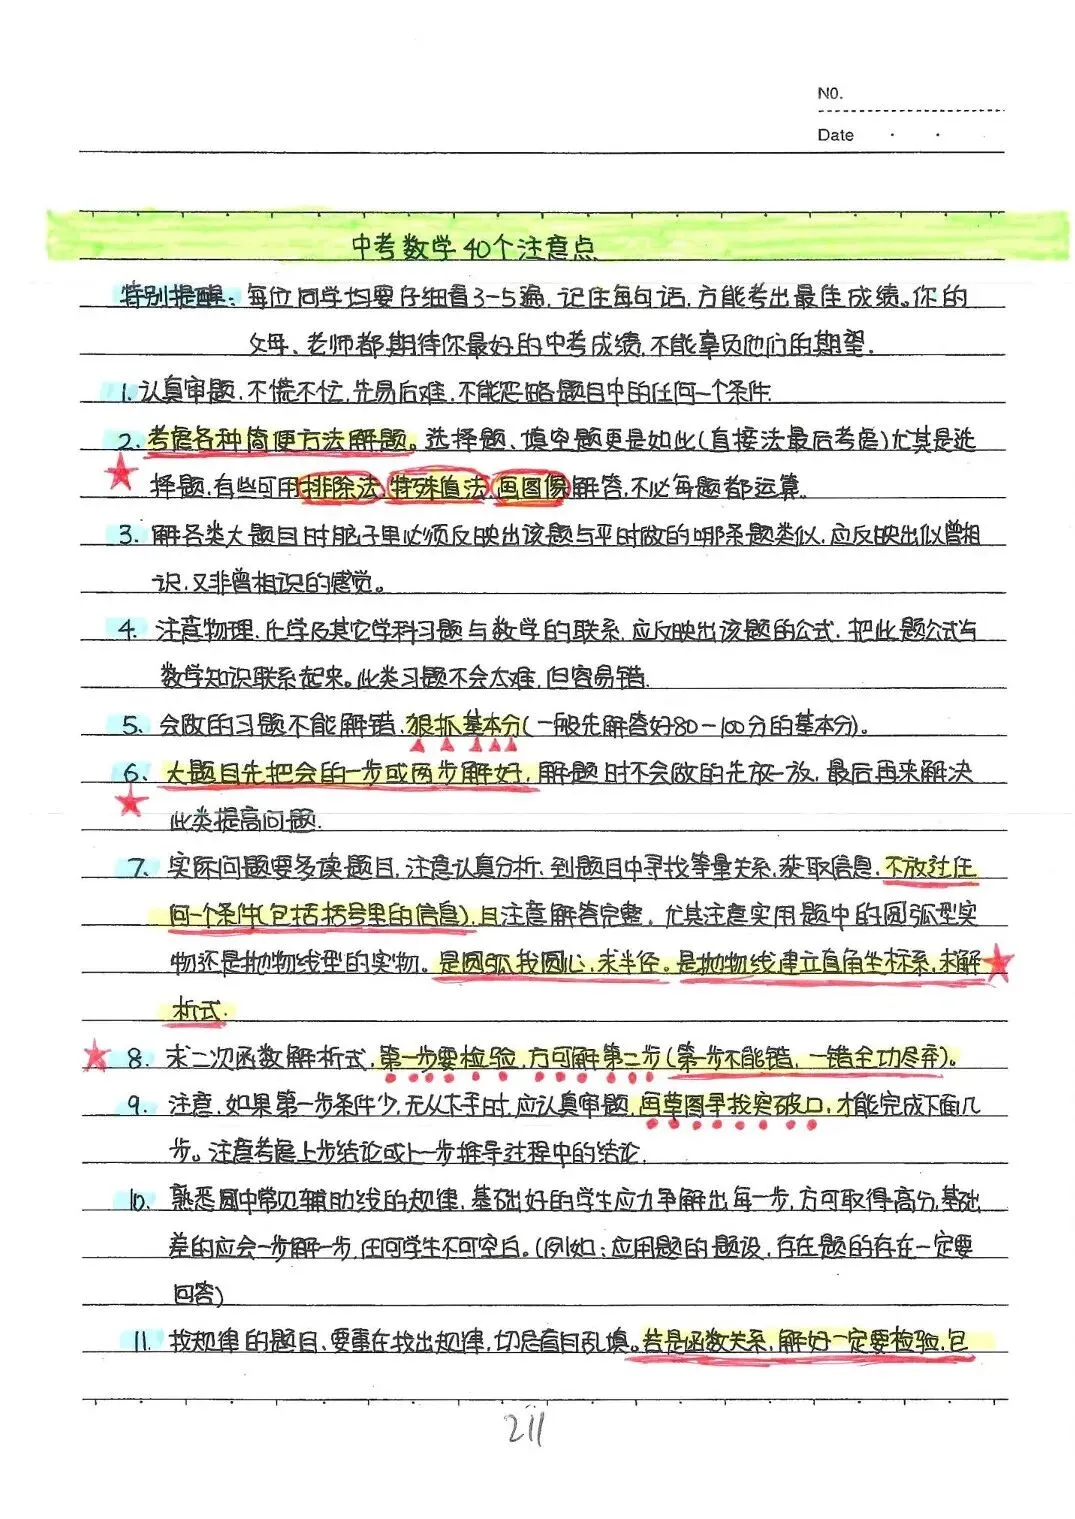 NO.
Date
中考数学40个注意点
特别提醒：每位同学均要仔细看3-5遍，记住每句话，方能考出最佳成绩。你的
父母、老师都期待你最好的中考成绩，不能辜负他们的期望。
1. 认真审题，不慌不忙，先易后难，不能忽略题目中的任何一个条件.
2. 考虑各种简便方法解题。选择题、填空题更是如此(直接法最后考虑)尤其是选
择题，有些可用排除法、特殊值法、画图像解答，不必每题都运算。
3. 解各类大题目时脑子里必须反映出该题与平时做的哪条题类似，应反映出似曾相
识，又非曾相识的感觉。
4. 注意物理、化学及其它学科习题与数学的联系，应反映出该题的公式，把此题公式与
数学知识联系起来。此类习题不会太难，但容易错.
5、会做的习题不能解错，狠抓基本分(一般先解答好80-100分的基本分)。
6、大题目先把会的一步或两步解好，解题时不会做的先放一放，最后再来解决
此类提高问题.
7、实际问题要多读题目，注意认真分析，到题目中寻找等量关系，获取信息，不放过任
何一个条件(包括括号里的信息)，且注意解答完整，尤其注意实用题中的圆弧型实
物还是抛物线型的实物。是圆弧找圆心，求半径。是抛物线建立直角坐标系，求解
析式.
8. 求二次函数解析式，第一步要检验，方可解第二步(第一步不能错，一错全功尽弃)。
9. 注意，如果第一步条件少，无从下手时，应认真审题，画草图寻找突破口，才能完成下面几
步。注意考虑上步结论或上一步推导过程中的结论.
10. 熟悉圆中常见辅助线的规律，基础好的学生应力争解出每一步，方可取得高分，基础
差的应会一步解一步，任何学生不可空白。(例如：应用题的题设，存在题的存在一定要
回答)
11. 找规律的题目，要重在找出规律，切忌盲目乱填。若是函数关系，解好一定要检验，包
211